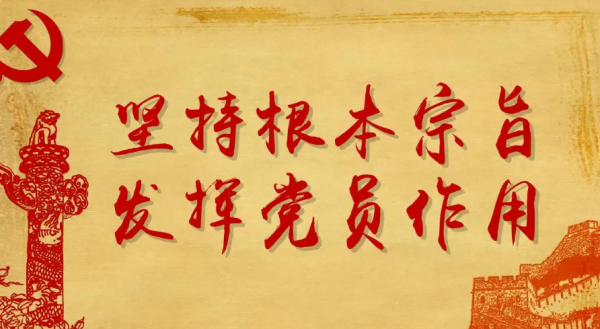 坚持根本宗旨
发挥党员作用